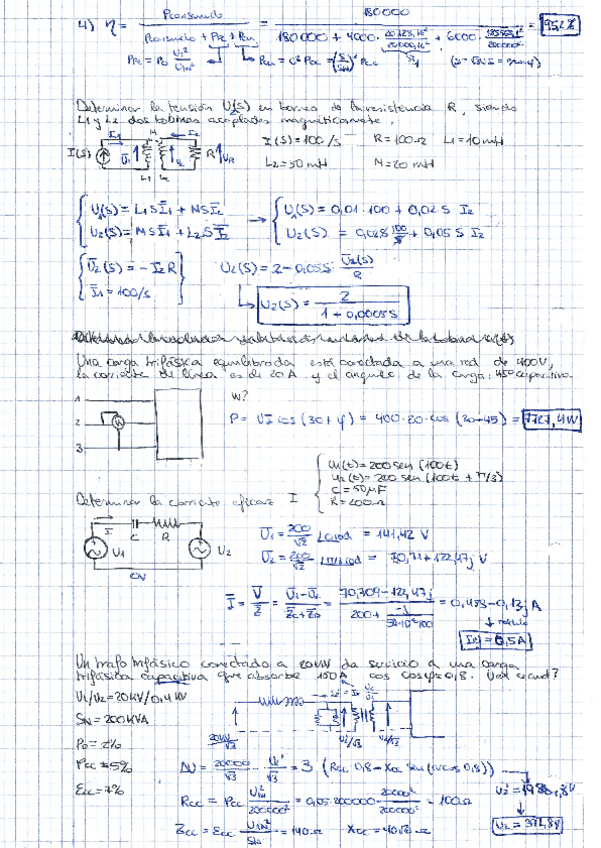 4) η = Pconsumido / Pconsumido + PFe + Pcu = 180000 / 180000 + 4000 · + 6000 · = 95,2%
PFe = P0 U1²/U1N² Pcu = C² Pcc = (S/SN)² Pcc
Determinar la tensión U2(s) en bornes de la resistencia R, siendo
L1 y L2 dos bobinas acopladas magnéticamente.
I1 M I2
I(s) U1 U2 R UR
L1 L2
I(s) = 100/s R = 100Ω L1 = 10mH
L2 = 50 mH M = 20 mH
U1(s) = L1 S I1 + M S I2 → U1(s) = 0,01 · 100 + 0,02 S I2
U2(s) = M S I1 + L2 S I2 U2(s) = 0,02 S 100/S + 0,05 S I2
U2(s) = - I2 R U2(s) = 2 - 0,05 S · U2(s)/R
I1 = 100/s
U2(s) = 2 / 1 + 0,0005 S
Una carga trifásica equilibrada está conectada a una red de 400V,
la corriente de línea es de 20A y el ángulo de la carga: 45º capacitiva.
1
W?
2 W P = UI cos(30+φ) = 400·20·cos(30-45) = 7727,4W
3
u1(t) = 200 sen (100t)
u2(t) = 200 sen (100t + π/3)
C = 50μF
R = 200Ω
Determinar la corriente eficaz I
I C R
U1 U2
0V
U1 = 200/√2 = 141,42 V
U2 = 200/√2 = 70,71 + 122,47j V
I = V/Z = U1 - U2 / = 70,709 - 122,47j / 200 + = 0,458 - 0,13j A
módulo
|I| = 0,5A
Un trafo trifásico conectado a 20kV da servicio a una carga
trifásica capacitiva que absorbe 150A cos cosφ = 0,8.
U1/U2 = 20kV/0,4 kV
SN = 200KVA
P0 = 2%
Pcc = 5%
Ecc = 7%
20kV/√3
ΔU = 20000/√3 - U2'/√3 = 3 (Rcc 0,8 - Xcc sen(arcos 0,8))
Rcc = Pcc U1N²/200000² = 0,05·200000· 20000²/200000² = 100Ω
Zcc = Ecc U1N²/SN = 140Ω Xcc = 40√6 Ω
U2 = 371,8V